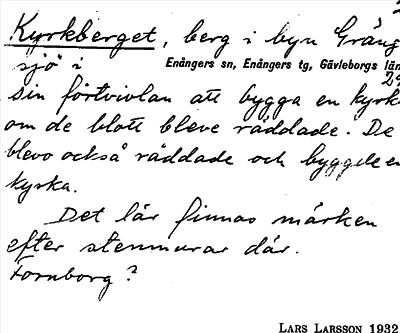 Kyrkberget, berg i byn Gräng
sjö i
Enångers sn, Enångers tg, Gävleborgs län
sin förtvivlan att bygga en kyrk
om de blott bleve räddade. De
blevo också räddade och byggde en
kyrka.
Det lär finnas märken
efter stenmurar där.
Fornborg?
LARS LARSSON 1932